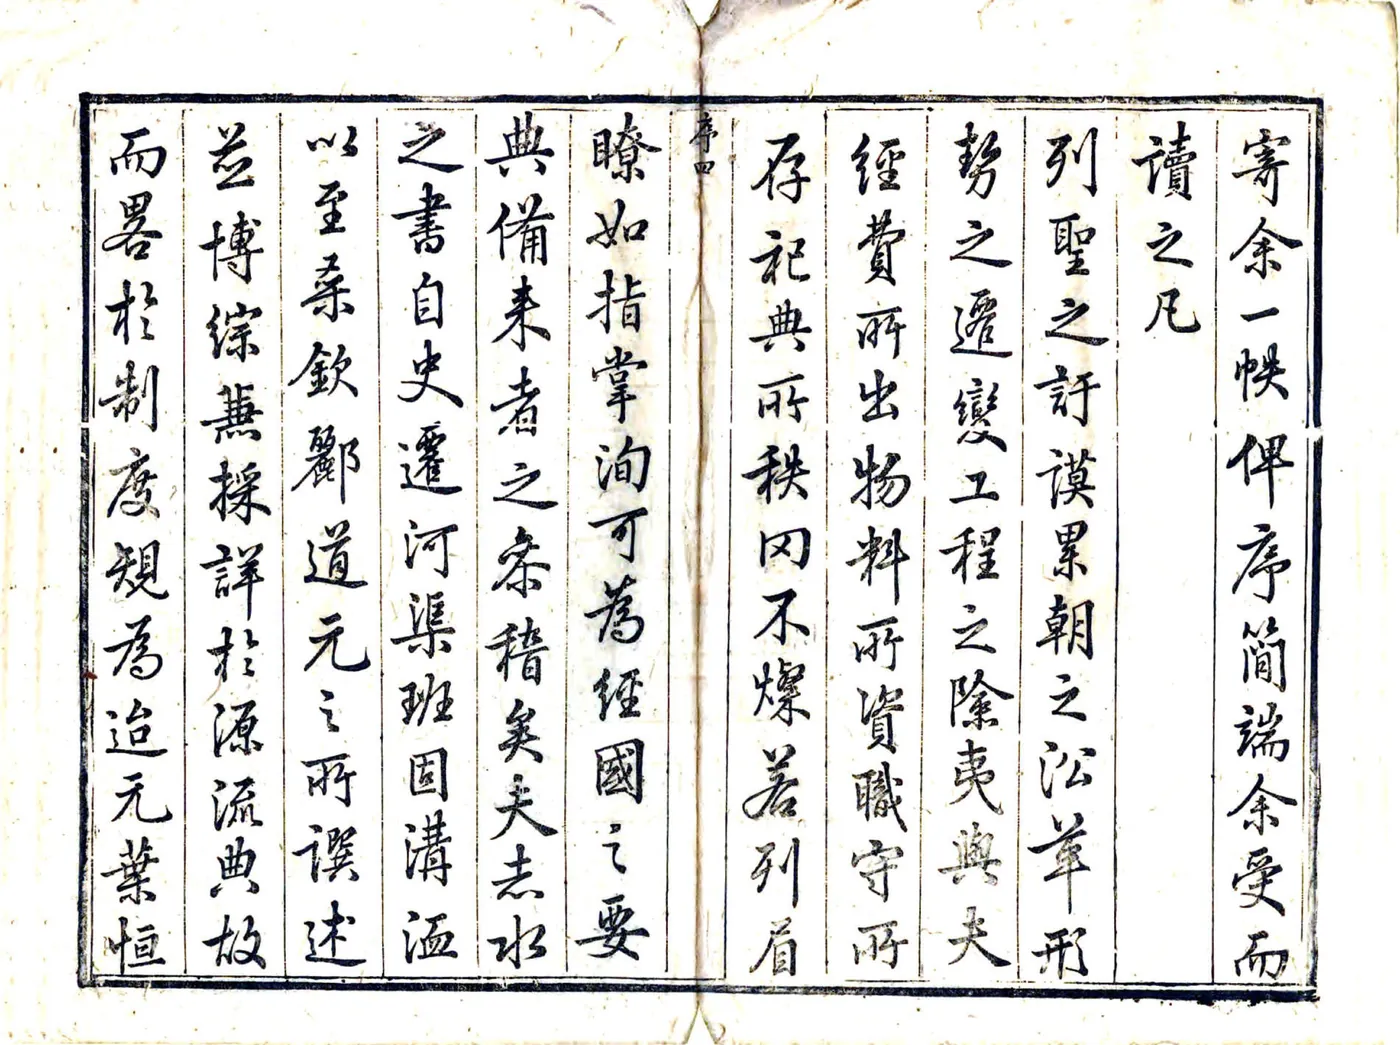 寄余一帙俾序簡端余受而
讀之凡
列聖之訏謨累朝之沿革形
勢之遷變工程之除夷與夫
經費所出物料所資職守所
存祀典所秩罔不燦若列眉
序四
瞭如指掌洵可為經國之要
典備来者之叅稽矣夫志水
之書自史遷河渠班固溝洫
以至桑欽酈道元之所譔述
並博綜蕪採詳於源流典故
而畧於制度規為迨元葉恒